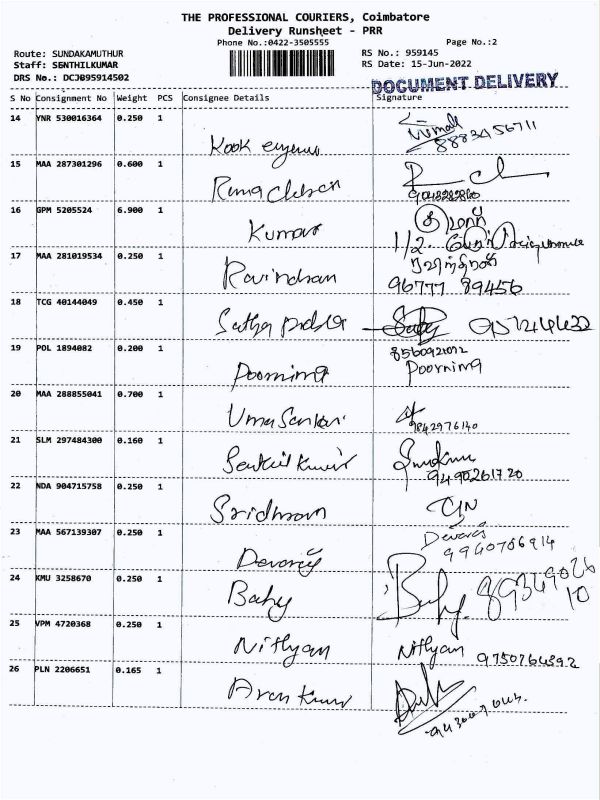 THE PROFESSIONAL COURIERS, Coimbatore
Delivery Runsheet - PRR
Phone No.:0422-3505555
Page No.:2
Route: SUNDAKAMUTHUR
RS No.: 959145
Staff: SENTHILKUMAR
RS Date: 15-Jun-2022
DRS No.: DCJB95914502
DOCUMENT DELIVERY
S No Consignment No Weight PCS Consignee Details Signature
14 YNR 530016364 0.250 1
15 MAA 287301296 0.600 1
16 GPM 5205524 6.900 1 Kumar
17 MAA 281019534 0.250 1 Ravindran
96777 89456
18 TCG 40144049 0.450 1
19 POL 1894082 0.200 1 Poornima Poornima
20 MAA 288855041 0.700 1 Uma Sankar
9842976140
21 SLM 297484300 0.160 1 Senthil Kumar
9490261720
22 NDA 904715758 0.250 1 Sridharan
23 MAA 567139307 0.250 1 Devaraj
9940766914
24 KMU 3258670 0.250 1 Baby Baby
25 VPM 4720368 0.250 1 Nithyan Nithyan 9750764392
26 PLN 2206651 0.165 1 Arun Kumar